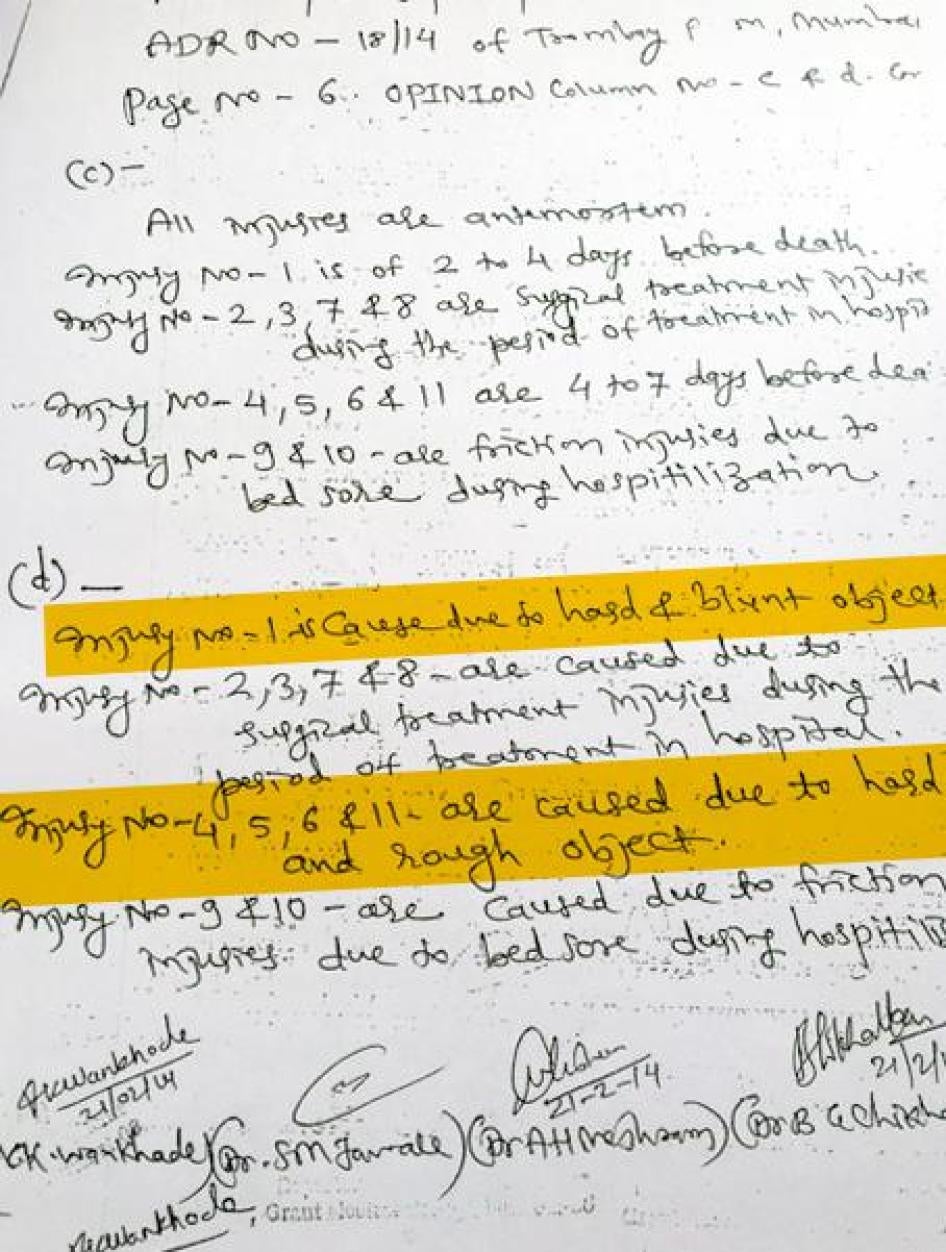 ADR NO - 18/14 of Trombay P m, Mumbai
Page No - 6. OPINION Column No - c & d. Con
(c) -
All injuries are antimortem.
Injury No - 1 is of 2 to 4 days before death.
Injury No - 2, 3, 7 & 8 are surgical treatment injurie
during the period of treatment in hospit
Injury No - 4, 5, 6 & 11 are 4 to 7 days before dea
Injury No - 9 & 10 - are friction injuries due to
bed sore during hospitilization.
(d) -
Injury No - 1 is Cause due to hard & blunt object
Injury No - 2, 3, 7 & 8 - are caused due to
surgical treatment injuries during the
period of treatment in hospital.
Injury No - 4, 5, 6 & 11 - are caused due to hard
and rough object.
Injury No - 9 & 10 - are caused due to friction
injuries due to bed sore during hospitili
Wankhade
21/02/14 21-2-14 21/2/
K.K. Wankhade) (Dr. S M Jawale) (Dr A H Meshram) (Dr B G Chikh
Wankhade, Grant